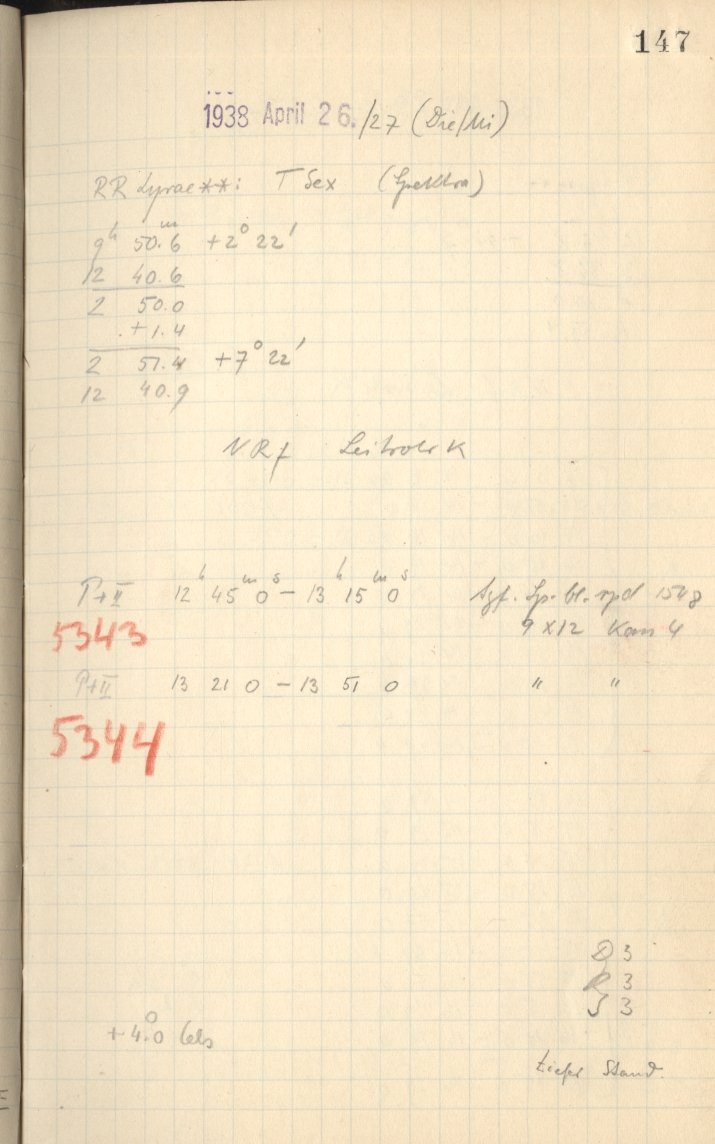 147
1938 April 26./27 (Die/Mi)
RR Lyrae**: T Sex (Spektra)
9h 50.m6 +2° 22'
12 40.6
2 50.0
+1.4
2 51.4 +7° 22'
12 40.9
Leitrohr K
P+II 12h 45m 0s – 13h 15m 0s Agf. Sp. bl. rpd
5343 9x12 Kass 4
P+II 13 21 0 – 13 51 0 " "
5344
D 3
R 3
S 3
+4.°0 Cels
tiefer Stand.